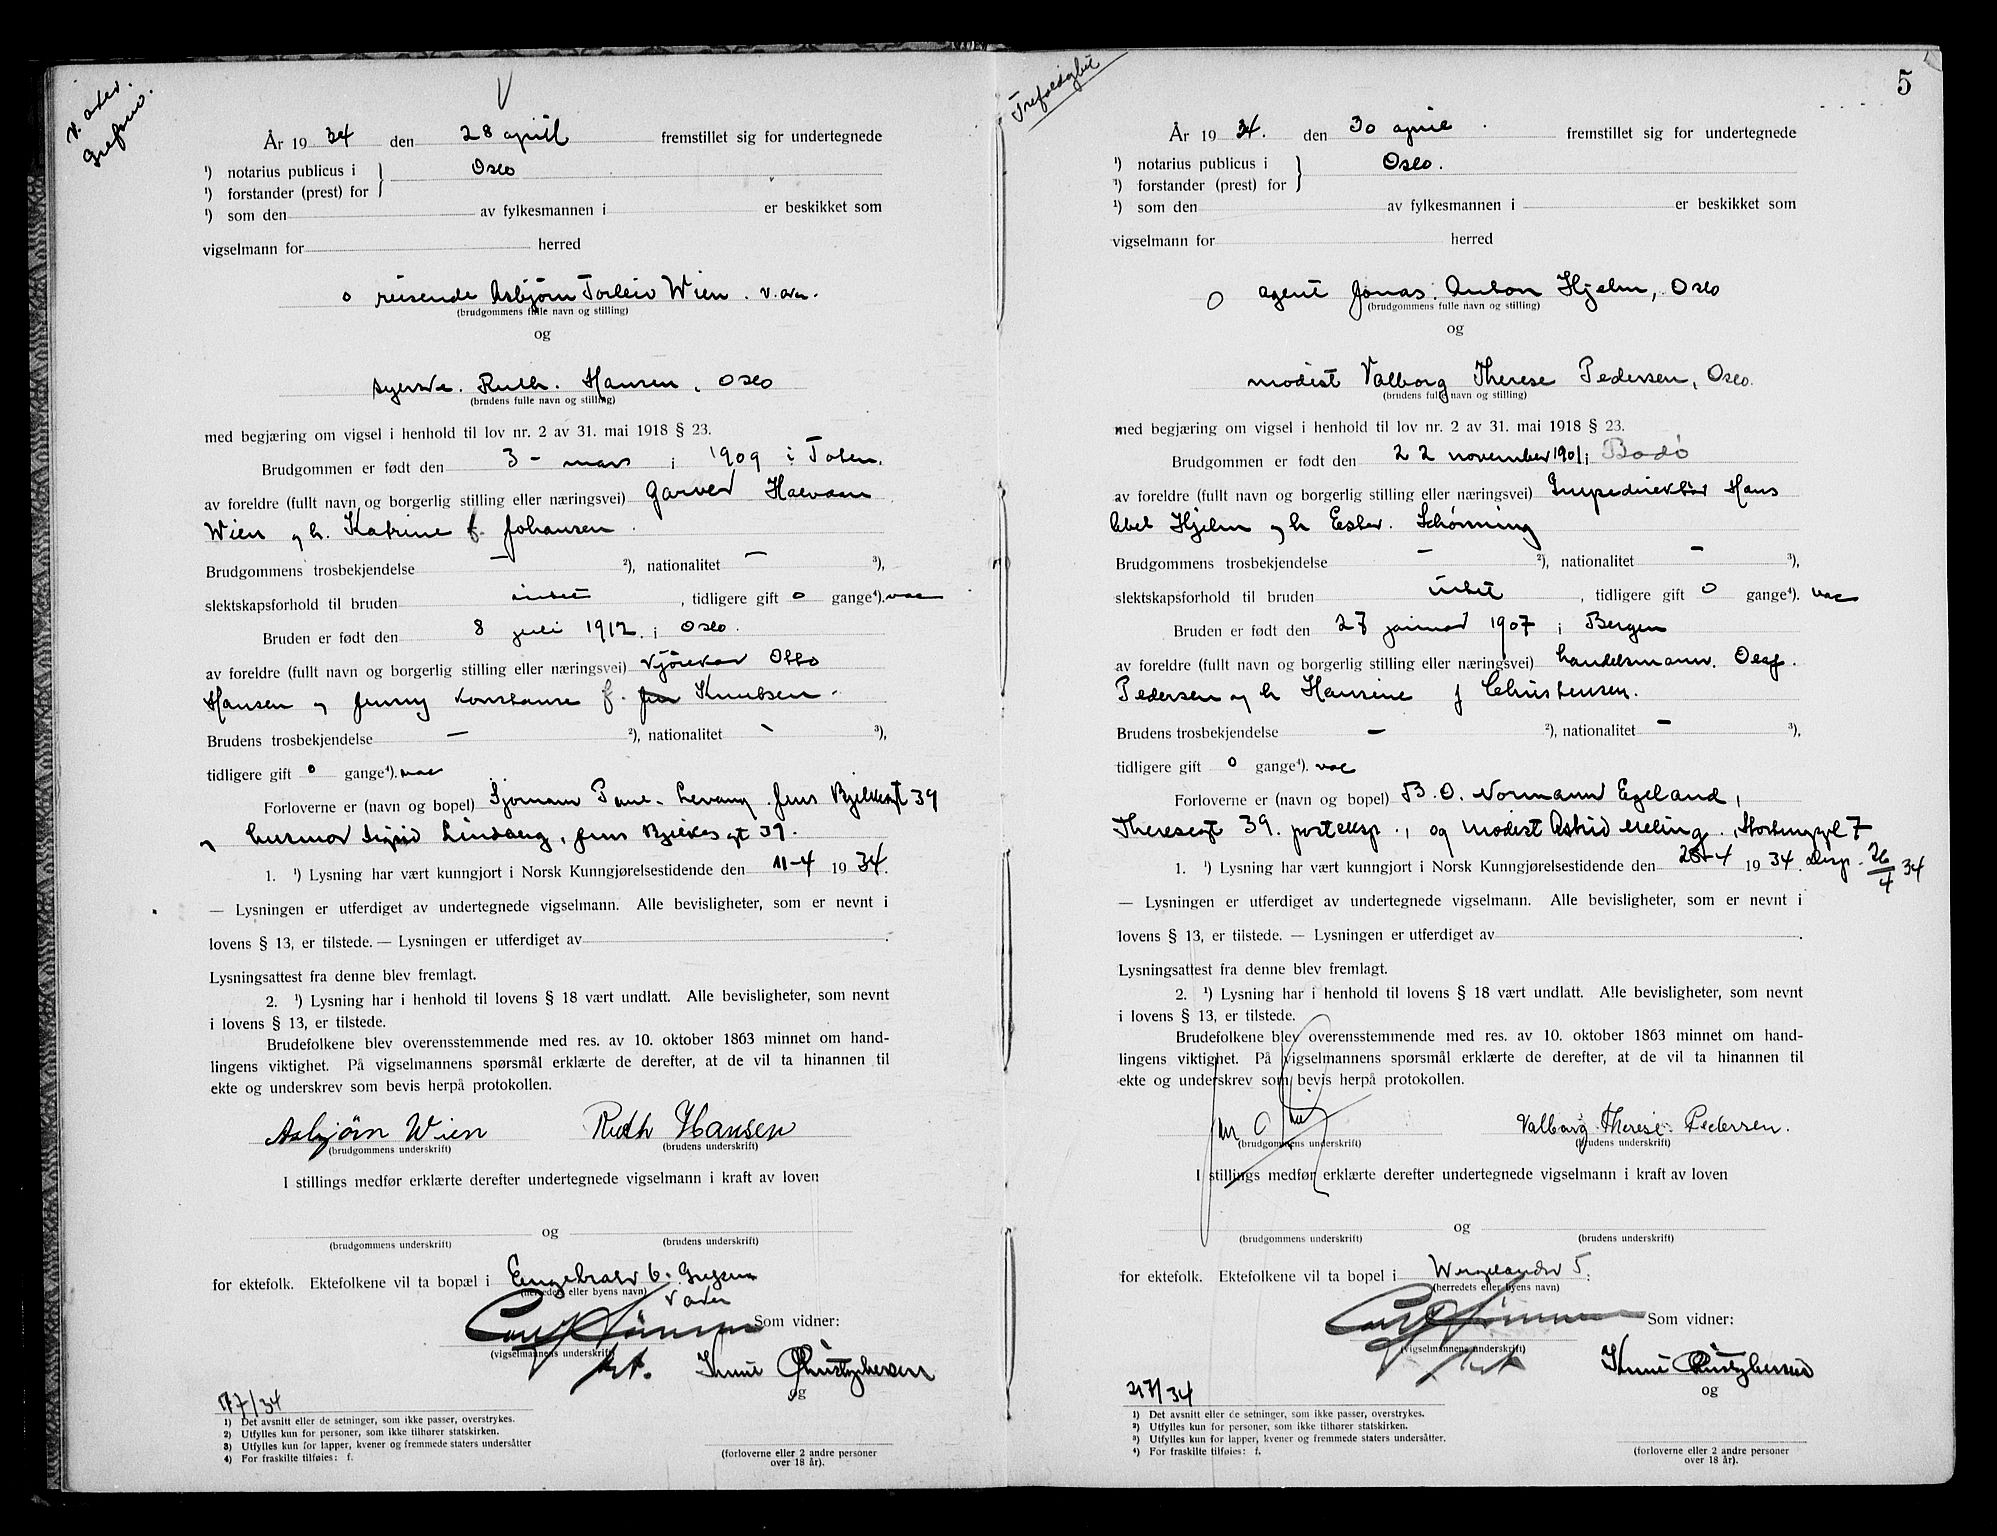 v. aker.
Grefsen.
År 1934 den 28 april fremstillet sig for undertegnede
¹) notarius publicus i } Oslo
¹) forstander (prest) for
¹) som den av fylkesmannen i er beskikket som
vigselmann for herred
o reisende Asbjørn Torleiv Wien. v. aker.
(brudgommens fulle navn og stilling)
og
syerske. Ruth. Hansen, Oslo
(brudens fulle navn og stilling)
med begjæring om vigsel i henhold til lov nr. 2 av 31. mai 1918 § 23.
Brudgommen er født den 3 - mars i 1909 i Toten.
av foreldre (fullt navn og borgerlig stilling eller næringsvei) garver Halvdan
Wien og h. Katrine f. Johansen.
Brudgommens trosbekjendelse – ²), nationalitet – ³),
slektskapsforhold til bruden intet, tidligere gift o gange⁴).
Bruden er født den 8 juli 1912. i Oslo.
av foreldre (fullt navn og borgerlig stilling eller næringsvei) kjørekar Otto
Hansen og Jenny Konstanse f. Knutsen.
Brudens trosbekjendelse – ²), nationalitet - ³),
tidligere gift o gange⁴).
Forloverne er (navn og bopel) Sjømann Levang Jens Bjelkesgt 39
og husmor Sigrid Lindberg, Jens Bjelkes gt 39.
1. ¹) Lysning har vært kunngjort i Norsk Kunngjørelsestidende den 11-4 1934.
— Lysningen er utferdiget av undertegnede vigselmann. Alle bevisligheter, som er nevnt i
lovens § 13, er tilstede. — Lysningen er utferdiget av .
Lysningsattest fra denne blev fremlagt.
2. ¹) Lysning har i henhold til lovens § 18 vært undlatt. Alle bevisligheter, som nevnt
i lovens § 13, er tilstede.
Brudefolkene blev overensstemmende med res. av 10. oktober 1863 minnet om hand-
lingens viktighet. På vigselmannens spørsmål erklærte de derefter, at de vil ta hinannen til
ekte og underskrev som bevis herpå protokollen.
Asbjörn Wien Ruth Hansen
(brudgommens underskrift) (brudens underskrift)
I stillings medfør erklærte derefter undertegnede vigselmann i kraft av loven
og
(brudgommens underskrift) (brudens underskrift)
for ektefolk. Ektefolkene vil ta bopæl i 6. Grefsen
(herredets eller byens navn)
v aker
Som vidner:
(vigselmannens underskrift)
Christophersen
og
177/34
1) Det avsnitt eller de setninger, som ikke passer, overstrykes.
2) Utfylles kun for personer, som ikke tilhører statskirken.
3) Utfylles kun for lapper, kvener og fremmede staters undersåtter
4) For fraskilte tilføies: f.
(forloverne eller 2 andre personer
over 18 år).
5
Trefoldighet
År 1934. den 30 april. fremstillet sig for undertegnede
¹) notarius publicus i } Oslo.
¹) forstander (prest) for
¹) som den av fylkesmannen i er beskikket som
vigselmann for herred
o agent Jonas. Anton Hjelm, Oslo
(brudgommens fulle navn og stilling)
og
modist Valborg Therese Pedersen, Oslo.
(brudens fulle navn og stilling)
med begjæring om vigsel i henhold til lov nr. 2 av 31. mai 1918 § 23.
Brudgommen er født den 22 november 1901 i Bodø
av foreldre (fullt navn og borgerlig stilling eller næringsvei) Hans
Abel Hjelm og h Ester. Schønning
Brudgommens trosbekjendelse – ²), nationalitet – ³),
slektskapsforhold til bruden intet, tidligere gift o gange⁴).
Bruden er født den 27 januar 1907 i Bergen
av foreldre (fullt navn og borgerlig stilling eller næringsvei) handelsmann. Olaf.
Pedersen og h Hansine f Christensen.
Brudens trosbekjendelse – ²), nationalitet – ³),
tidligere gift o gange⁴).
Forloverne er (navn og bopel) B. O. Normann Egeland,
Theresegt 39. posteksp., og modist Astrid Meling., Stortingspl 7
1. ¹) Lysning har vært kunngjort i Norsk Kunngjørelsestidende den 25-4 1934. Disp. 26/4 34
— Lysningen er utferdiget av undertegnede vigselmann. Alle bevisligheter, som er nevnt i
lovens § 13, er tilstede. — Lysningen er utferdiget av .
Lysningsattest fra denne blev fremlagt.
2. ¹) Lysning har i henhold til lovens § 18 vært undlatt. Alle bevisligheter, som nevnt
i lovens § 13, er tilstede.
Brudefolkene blev overensstemmende med res. av 10. oktober 1863 minnet om hand-
lingens viktighet. På vigselmannens spørsmål erklærte de derefter, at de vil ta hinannen til
ekte og underskrev som bevis herpå protokollen.
Valborg Therese Pedersen.
(brudgommens underskrift) (brudens underskrift)
I stillings medfør erklærte derefter undertegnede vigselmann i kraft av loven
og
(brudgommens underskrift) (brudens underskrift)
for ektefolk. Ektefolkene vil ta bopel i Wergelandsv 5.
(herredets eller byens navn)
Som vidner:
(vigselmannens underskrift)
Christophersen
og
217/34
1) Det avsnitt eller de setninger, som ikke passer, overstrykes.
2) Utfylles kun for personer, som ikke tilhører statskirken.
3) Utfylles kun for lapper, kvener og fremmede staters undersåtter.
4) For fraskilte tilføies: f.
(forloverne eller 2 andre personer
over 18 år).